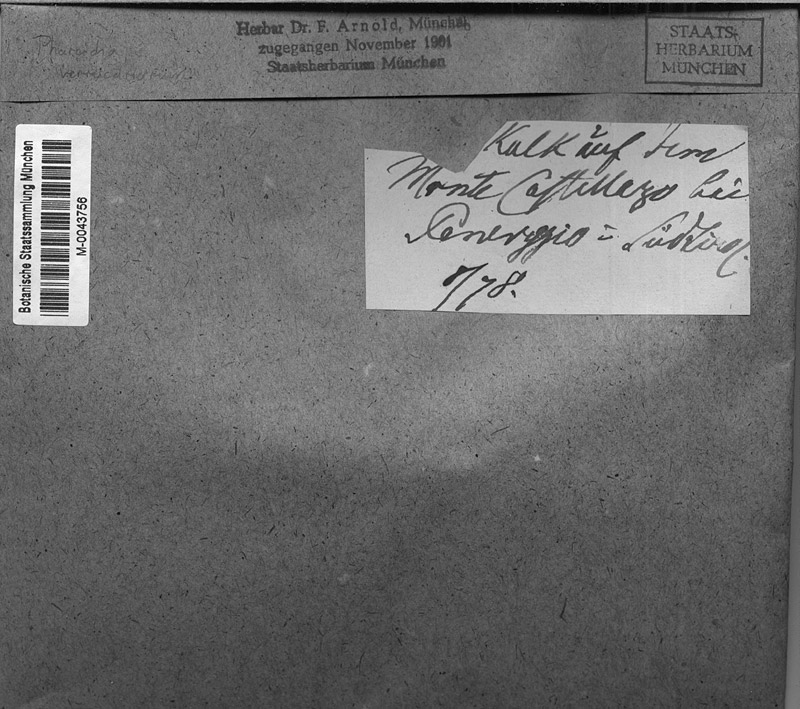 Herbar Dr. F. Arnold, München,
zugegangen November 1901
Staatsherbarium München
STAATS-
HERBARIUM
MÜNCHEN
Botanische Staatssammlung München
M-0043756
Kalk auf dem
Monte Castellazo bei
Paneveggio in Südtirol.
8/78.